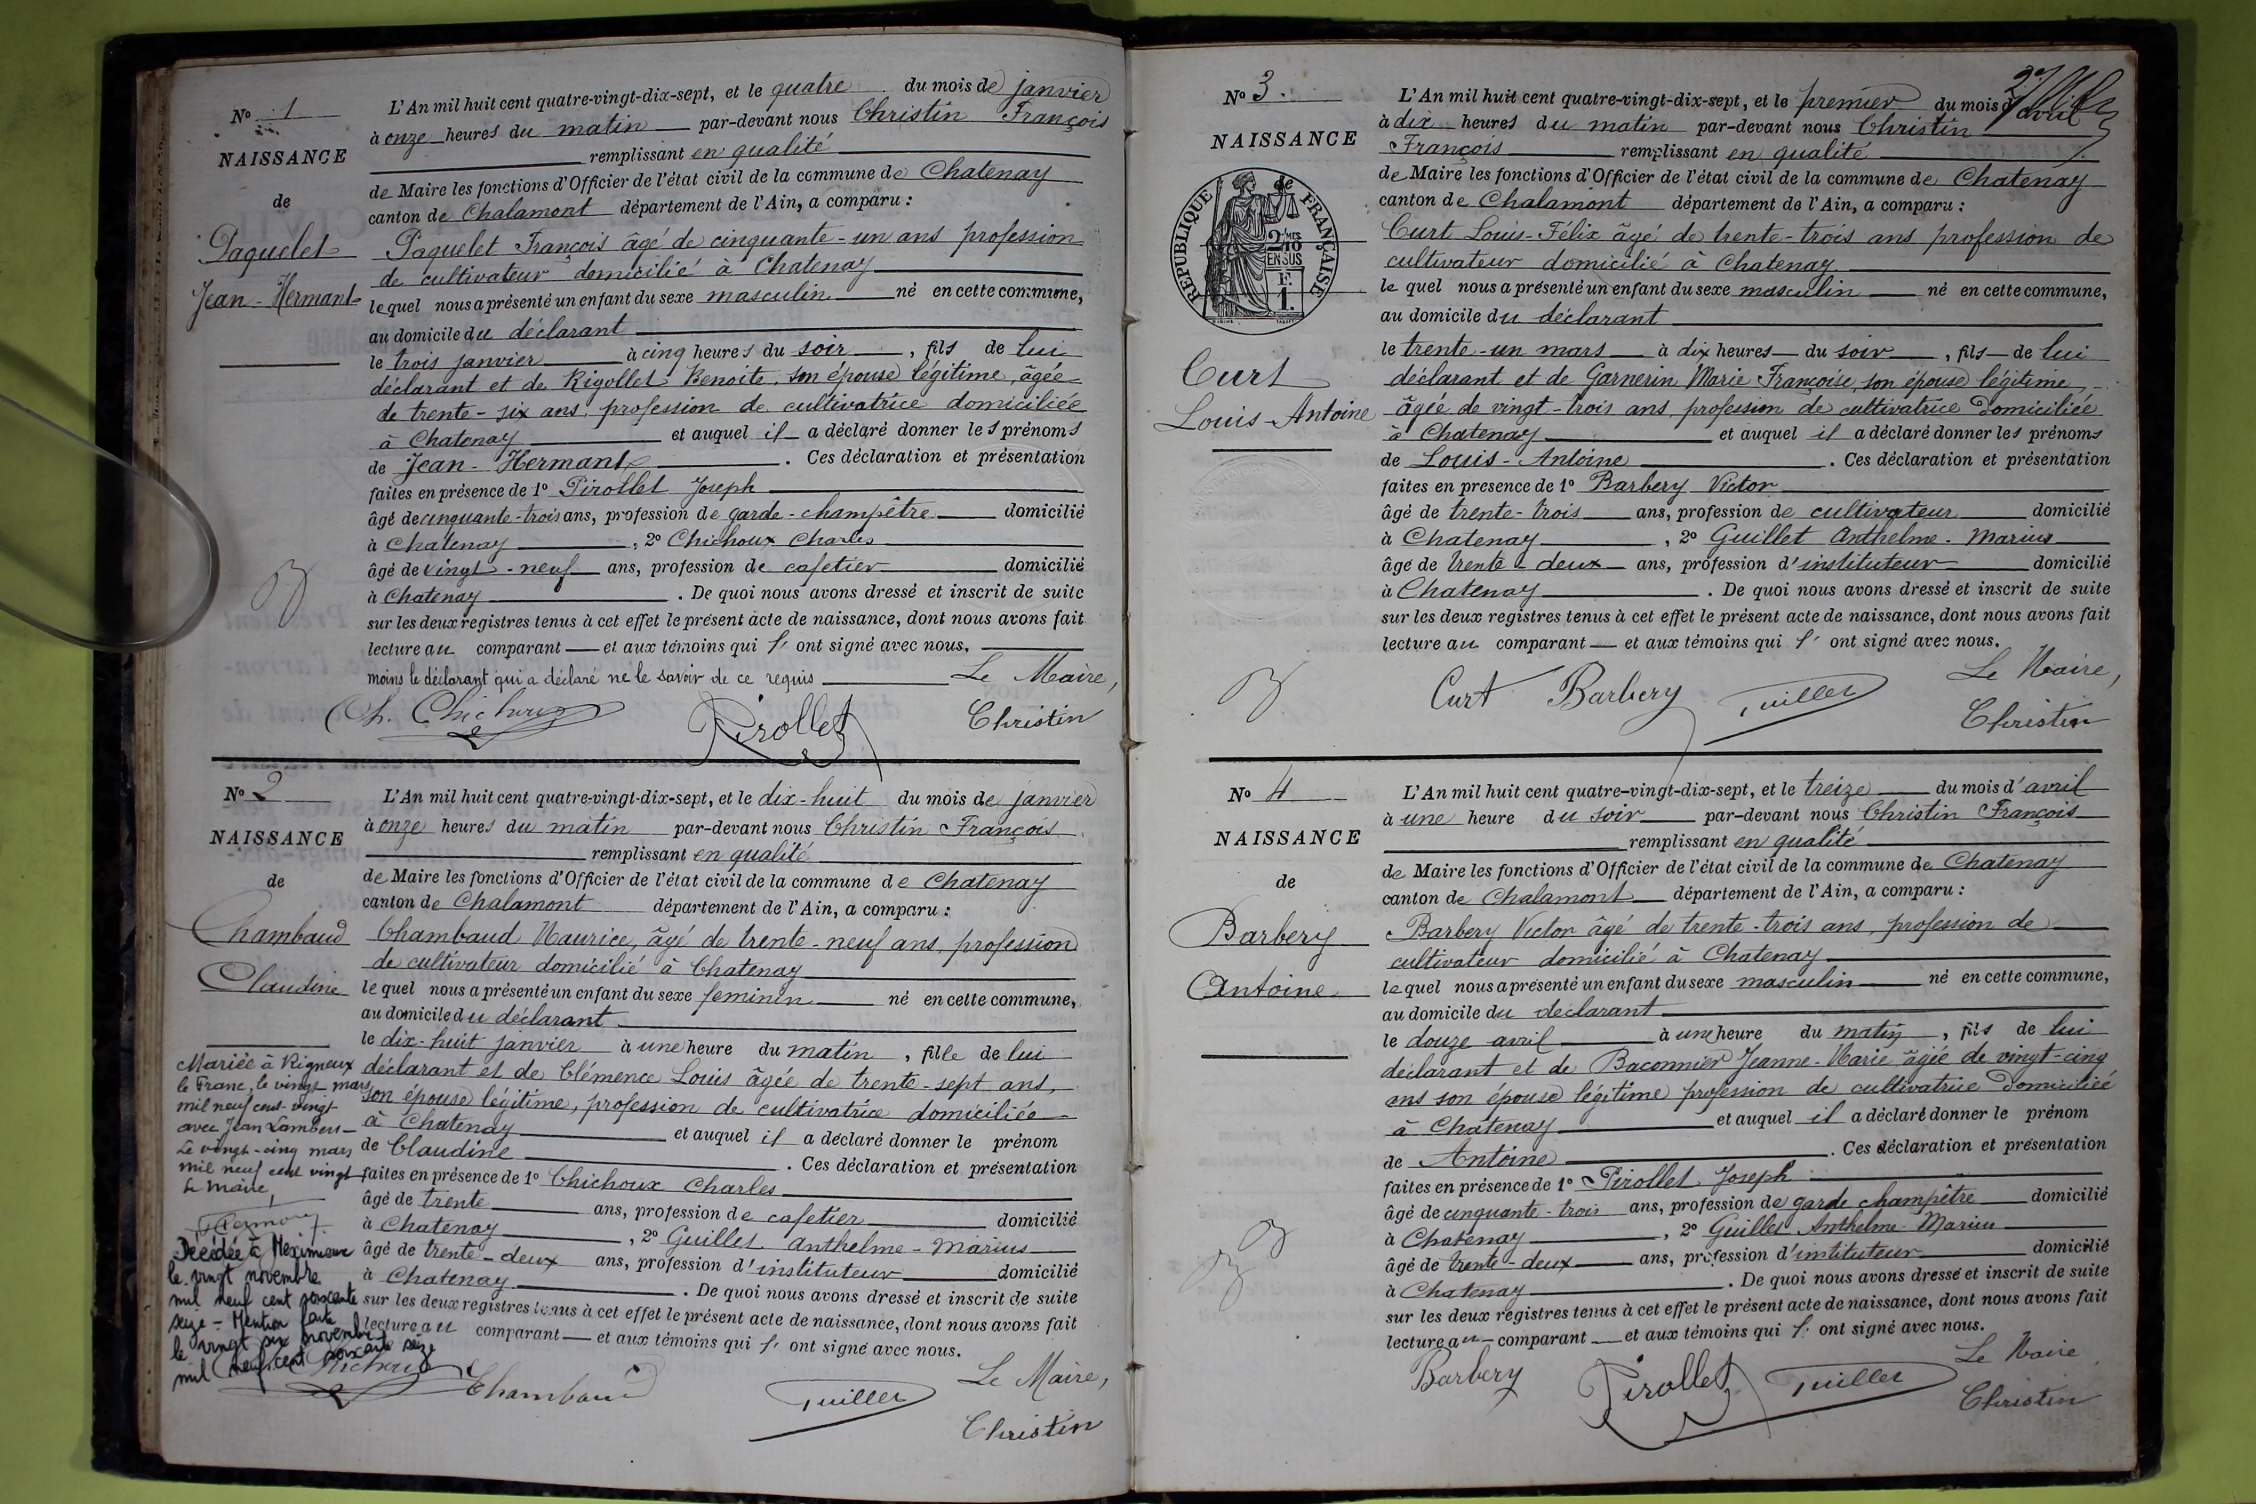 No 1
NAISSANCE
de
Paquelet
Jean-Hermant
L'An mil huit cent quatre-vingt-dix-sept, et le quatre du mois de janvier
à onze heures du matin par-devant nous Christin François
remplissant en qualité
de Maire les fonctions d'Officier de l'état civil de la commune de Chatenay
canton de Chalamont département de l'Ain, a comparu :
Paquelet François âgé de cinquante-un ans profession
de cultivateur domicilié à Chatenay
lequel nous a présenté un enfant du sexe masculin né en cette commune,
au domicile du déclarant
le trois janvier à cinq heures du soir, fils de lui
déclarant et de Rigollet Benoite, son épouse légitime, âgée
de trente-six ans, profession de cultivatrice domiciliée
à Chatenay et auquel il a déclaré donner les prénoms
de Jean-Hermant. Ces déclaration et présentation
faites en présence de 1o Pirollet Joseph
âgé de cinquante-trois ans, profession de garde-champêtre domicilié
à Chatenay, 2o Chichoux Charles
âgé de vingt-neuf ans, profession de cafetier domicilié
à Chatenay. De quoi nous avons dressé et inscrit de suite
sur les deux registres tenus à cet effet le présent acte de naissance, dont nous avons fait
lecture au comparant et aux témoins qui l' ont signé avec nous,
moins le déclarant qui a déclaré ne le savoir de ce requis Le Maire,
Ch. Chichoux Pirollet Christin
No 2
NAISSANCE
de
Chambaud
Claudine
Mariée à Rigneux
le Franc, le vingt mars
mil neuf cent vingt
avec Jean Lambert
Le vingt-cinq mars
mil neuf cent vingt
Le Maire,
Décédée à Meximieux
le vingt novembre
mil neuf cent soixante
seize - Mention faite
le vingt six novembre
mil neuf cent soixante seize
L'An mil huit cent quatre-vingt-dix-sept, et le dix-huit du mois de janvier
à onze heures du matin par-devant nous Christin François
remplissant en qualité
de Maire les fonctions d'Officier de l'état civil de la commune de Chatenay
canton de Chalamont département de l'Ain, a comparu :
Chambaud Maurice, âgé de trente-neuf ans, profession
de cultivateur domicilié à Chatenay
lequel nous a présenté un enfant du sexe feminin né en cette commune,
au domicile du déclarant
le dix-huit janvier à une heure du matin, fille de lui
déclarant et de Clémence Louis âgée de trente-sept ans,
son épouse légitime, profession de cultivatrice domiciliée
à Chatenay et auquel il a déclaré donner le prénom
de Claudine. Ces déclaration et présentation
faites en présence de 1o Chichoux Charles
âgé de trente ans, profession de cafetier domicilié
à Chatenay, 2o Guillet Anthelme-Marius
âgé de trente-deux ans, profession d'instituteur domicilié
à Chatenay. De quoi nous avons dressé et inscrit de suite
sur les deux registres tenus à cet effet le présent acte de naissance, dont nous avons fait
lecture au comparant et aux témoins qui l' ont signé avec nous.
Le Maire,
Chichoux Chambaud Guillet Christin
No 3.
NAISSANCE
de
RÉPUBLIQUE FRANÇAISE
2/10mes
EN SUS
F.
1.
Curt
Louis-Antoine
L'An mil huit cent quatre-vingt-dix-sept, et le premier du mois d'avril
à dix heures du matin par-devant nous Christin
François remplissant en qualité
de Maire les fonctions d'Officier de l'état civil de la commune de Chatenay
canton de Chalamont département de l'Ain, a comparu :
Curt Louis-Félix âgé de trente-trois ans profession de
cultivateur domicilié à Chatenay
lequel nous a présenté un enfant du sexe masculin né en cette commune,
au domicile du déclarant
le trente-un mars à dix heures du soir, fils de lui
déclarant et de Garnerin Marie Françoise, son épouse légitime,
âgée de vingt-trois ans, profession de cultivatrice domiciliée
à Chatenay et auquel il a déclaré donner les prénoms
de Louis-Antoine. Ces déclaration et présentation
faites en presence de 1o Barbery Victor
âgé de trente-trois ans, profession de cultivateur domicilié
à Chatenay, 2o Guillet Anthelme-Marius
âgé de trente-deux ans, profession d'instituteur domicilié
à Chatenay. De quoi nous avons dressé et inscrit de suite
sur les deux registres tenus à cet effet le présent acte de naissance, dont nous avons fait
lecture au comparant et aux témoins qui l' ont signé avec nous.
Le Maire,
Curt Barbery Guillet Christin
No 4
NAISSANCE
de
Barbery
Antoine
L'An mil huit cent quatre-vingt-dix-sept, et le treize du mois d'avril
à une heure du soir par-devant nous Christin François
remplissant en qualité
de Maire les fonctions d'Officier de l'état civil de la commune de Chatenay
canton de Chalamont département de l'Ain, a comparu :
Barbery Victor âgé de trente-trois ans, profession de
cultivateur domicilié à Chatenay
lequel nous a présenté un enfant du sexe masculin né en cette commune,
au domicile du declarant
le douze avril à une heure du matin, fils de lui
déclarant et de Baconnier Jeanne-Marie, âgée de vingt-cinq
ans son épouse légitime profession de cultivatrice domiciliée
à Chatenay et auquel il a déclaré donner le prénom
de Antoine. Ces déclaration et présentation
faites en présence de 1o Pirollet Joseph
âgé de cinquante-trois ans, profession de garde champêtre domicilié
à Chatenay, 2o Guillet Anthelme-Marius
âgé de trente-deux ans, profession d'instituteur domicilié
à Chatenay. De quoi nous avons dressé et inscrit de suite
sur les deux registres tenus à cet effet le présent acte de naissance, dont nous avons fait
lecture au comparant et aux témoins qui l' ont signé avec nous.
Le Maire
Barbery Pirollet Guillet Christin